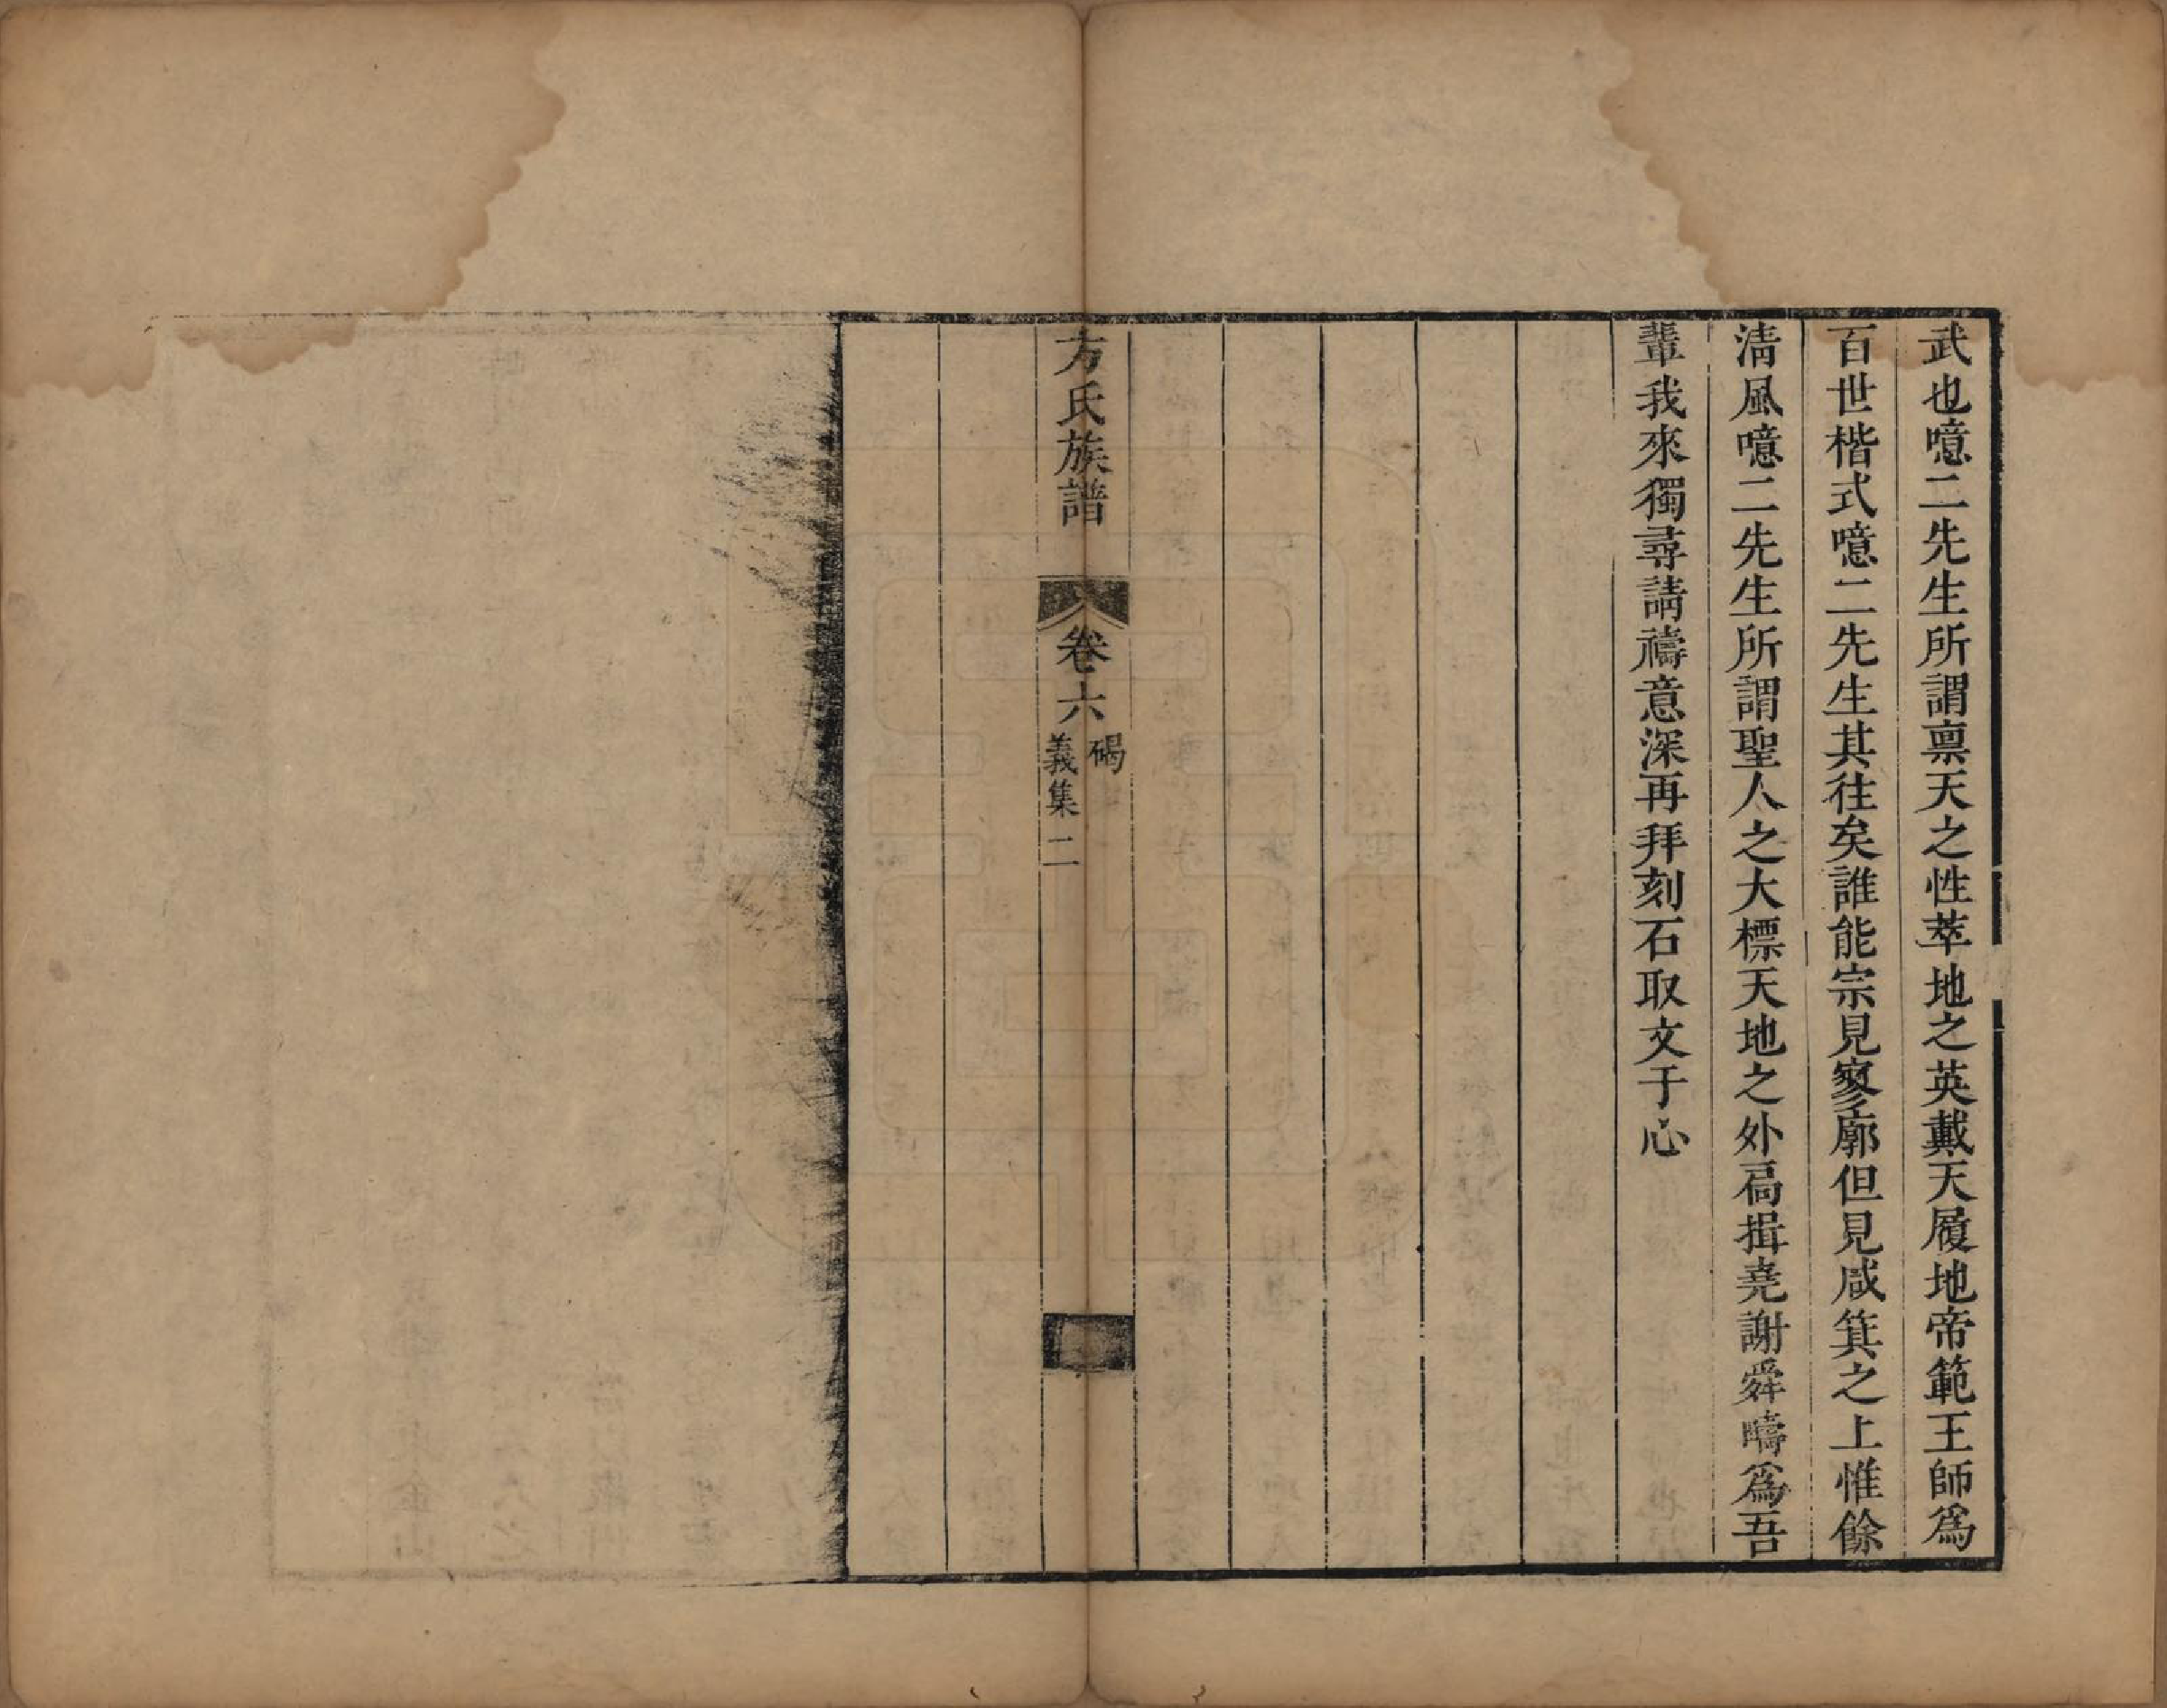 武也噫二先生所謂禀天之性萃地之英戴天履地帝範王師爲
百世楷式噫二先生其往矣誰能宗見寥廓但見咸箕之上惟餘
淸風噫二先生所謂聖人之大標天地之外高揖堯謝舜疇爲吾
輩我來獨尋請禱意深再拜刻石取文于心
方氏族譜
卷六
碣
義集二